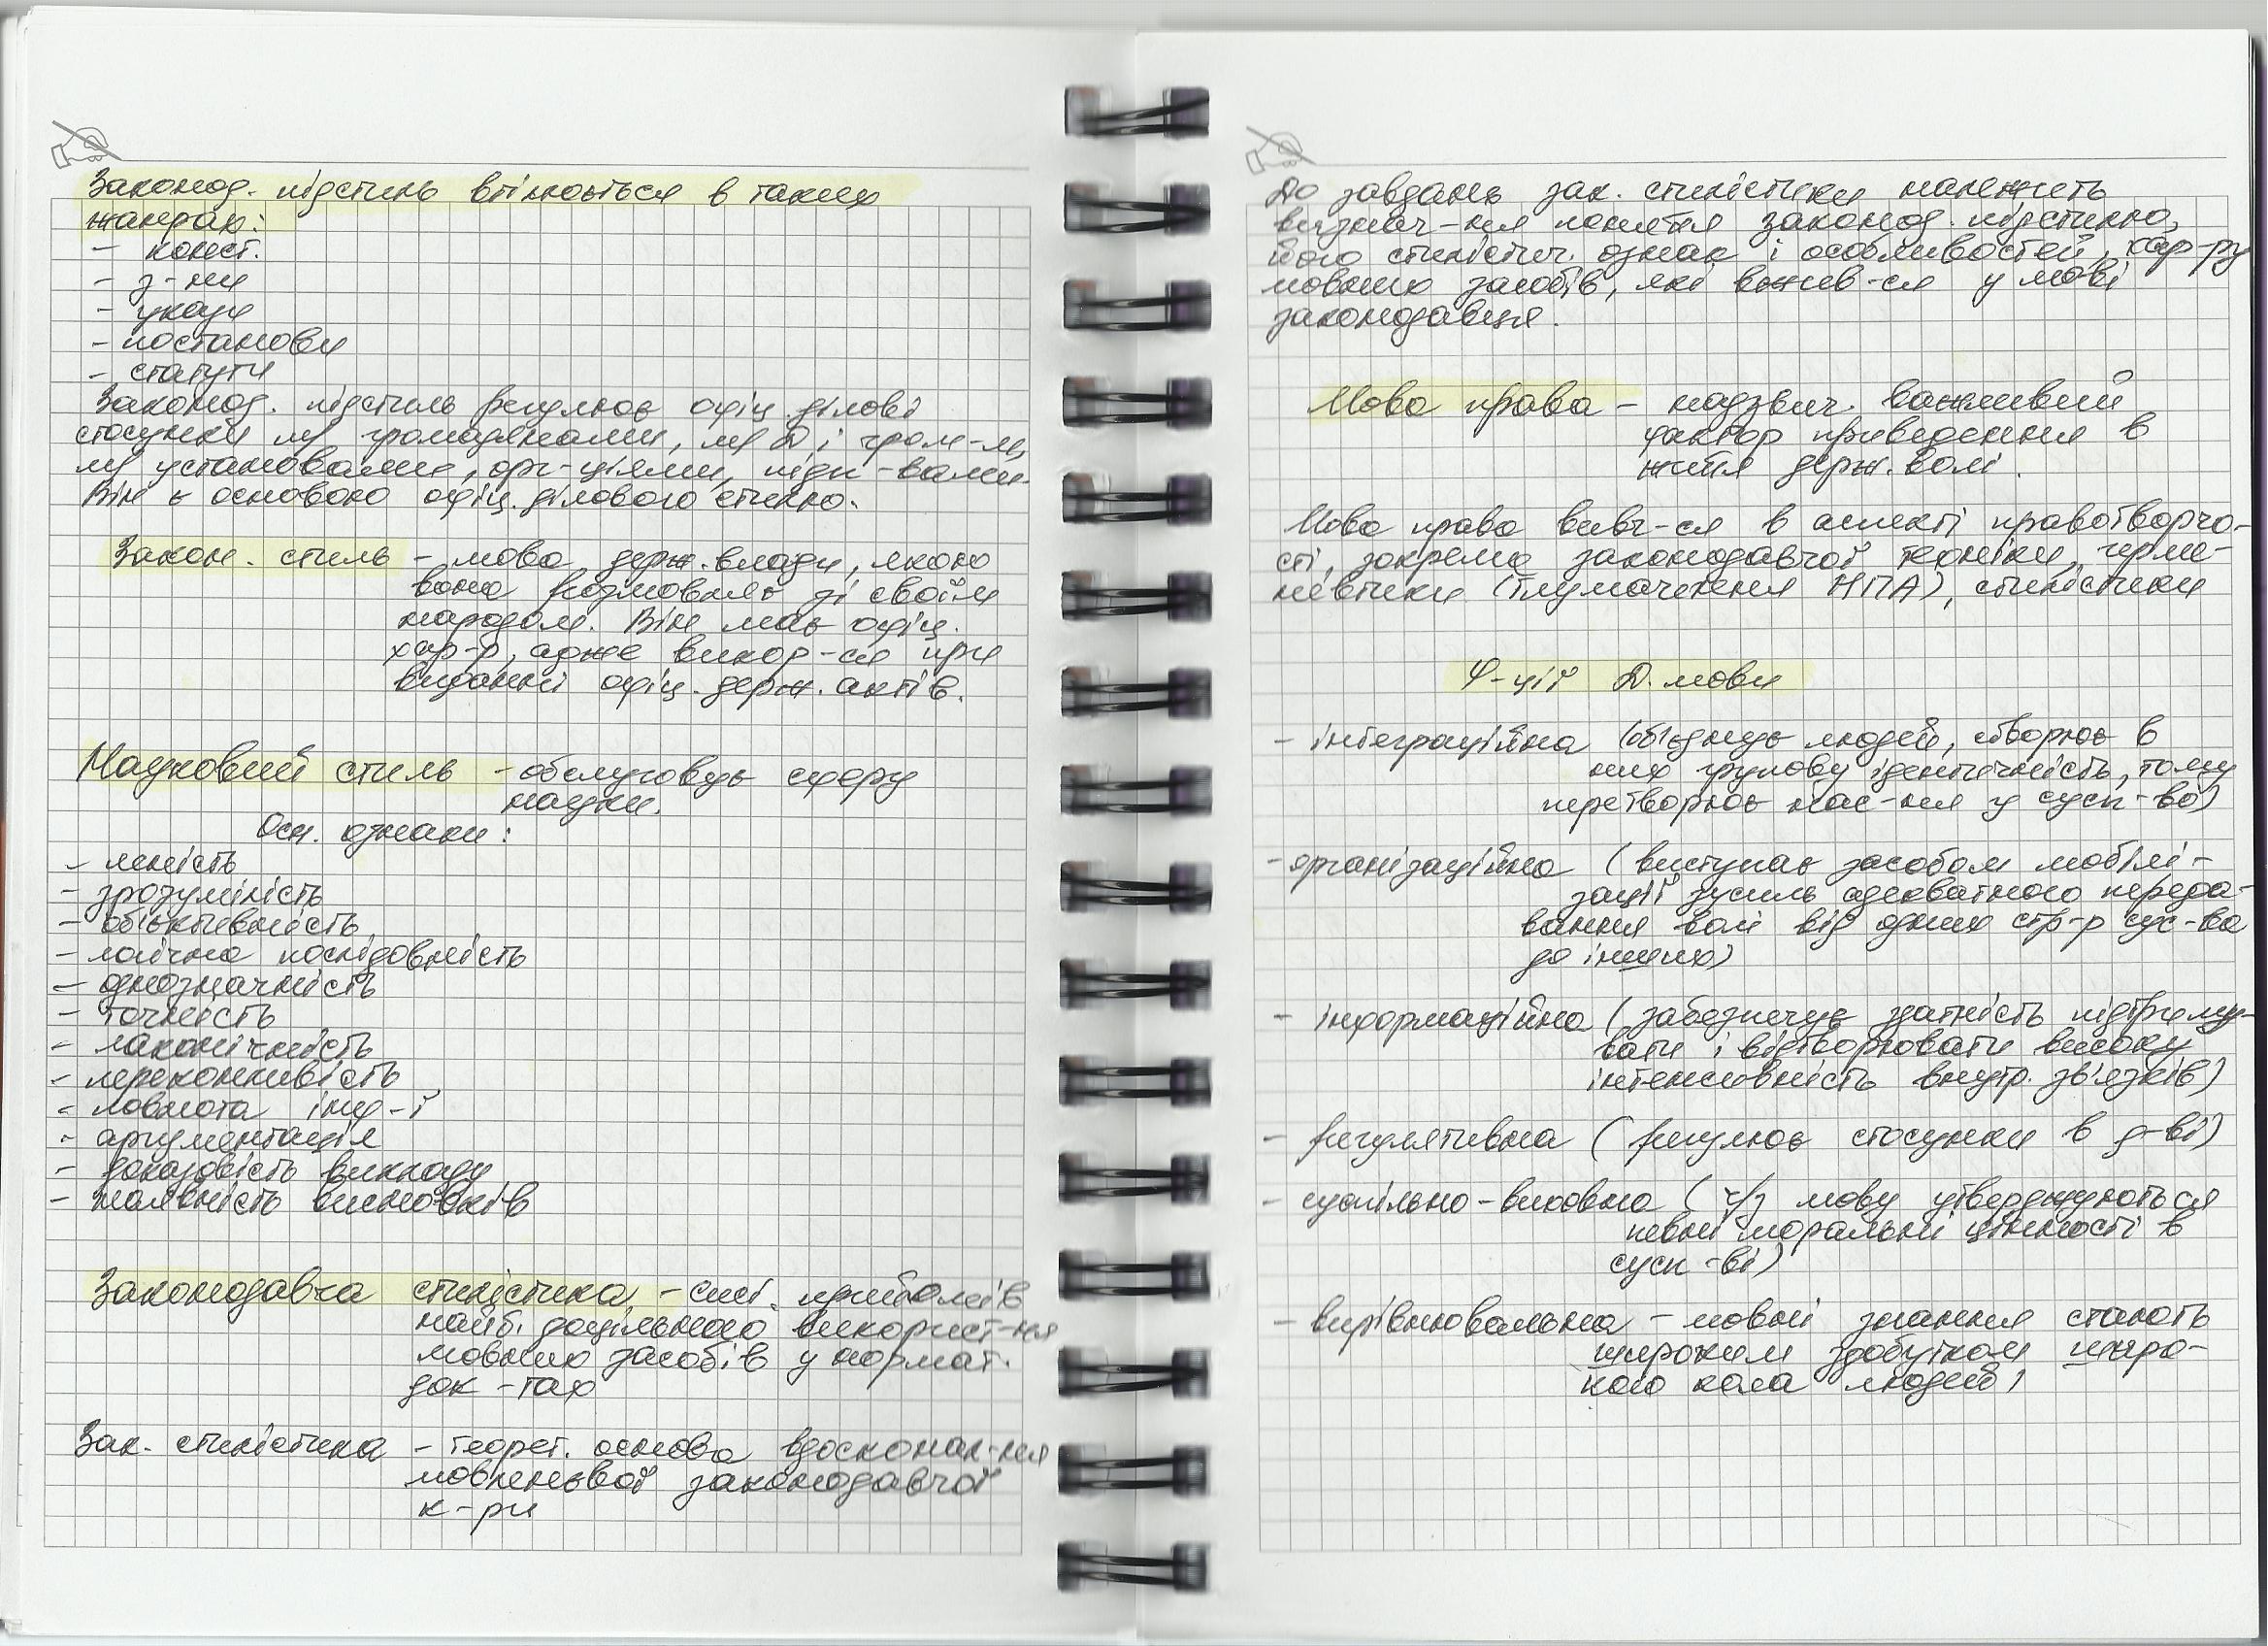 Законод. підстиль втілюється в таких
жанрах:
- конст.
- з-ни
- укази
- постанови
- статути
Законод. підстиль регулює офіц. ділові
стосунки між громадянами, між Д і гром-ми,
між установами, орг-ціями, підп-вами.
Він є основою офіц. ділового стилю.
Закон. стиль - мова держ. влади, якою
вона розмовляє зі своїм
народом. Він має офіц.
хар-р, адже викор-ся при
виданні офіц. держ. актів.
Науковий стиль - обслуговує сферу
науки.
Осн. ознаки:
- ясність
- зрозумілість
- об'єктивність
- логічна послідовність
- однозначність
- точність
- лаконічність
- переконливість
- повнота інф-ї
- аргументація
- доказовість викладу
- наявність висновків
Законодавча стилістика - сист. прийомів
найб. доцільного використ-ня
мовних засобів у нормат.
док-тах
Зак. стилістика - теорет. основа вдосконал-ня
мовленєвої законодавчої
к-ри
До завдань зак. стилістики належить
визнач-ня поняття законод. підстилю,
його стилістич. ознак і особливостей, хар-ру
мовних засобів, які вжив-ся у мові
законодавця.
Мова права - надзвич. важливий
фактор приведення в
життя держ. волі.
Мова права вивч-ся в аспекті правотворчо-
сті, зокрема законодавчої техніки, герме-
невтики (тлумачення НПА), стилістики
Ф-ції Д. мови
- інтеграційна (об'єднує людей, створює в
них групову ідентичність, тому
перетворює нас-ня у сусп-во)
- організаційна (виступає засобом мобілі-
зації зусиль адекватного переда-
вання волі від одних стр-р сус-ва
до інших)
- інформаційна (забезпечує здатність підтриму-
вати і відтворювати високу
інтенсивність внутр. зв'язків)
- регулятивна (регулює стосунки в д-ві)
- суспільно-виховна (ч/з мову утверджуються
певні моральні цінності в
сусп-ві)
- вирівнювальна - мовні знання стають
широким здобутком широ-
кого кола людей)